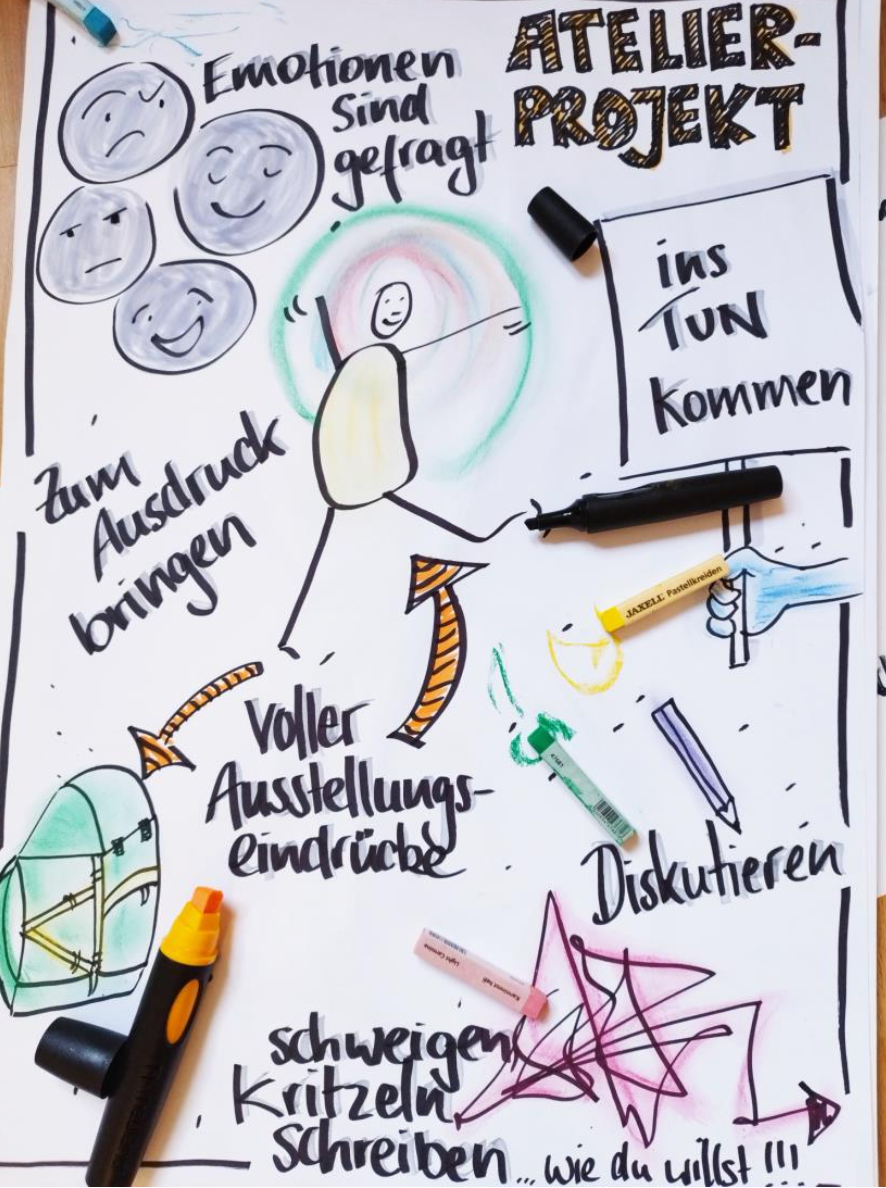 ATELIER-
PROJEKT
Emotionen
sind
gefragt
ins
TUN
kommen
Zum
Ausdruck
bringen
JAXELL Pastellkreiden
Voller
Ausstellungs-
eindrücke
Diskutieren
Light Carmine
Karminrot hell
schweigen
Kritzeln
schreiben ... wie du willst !!!